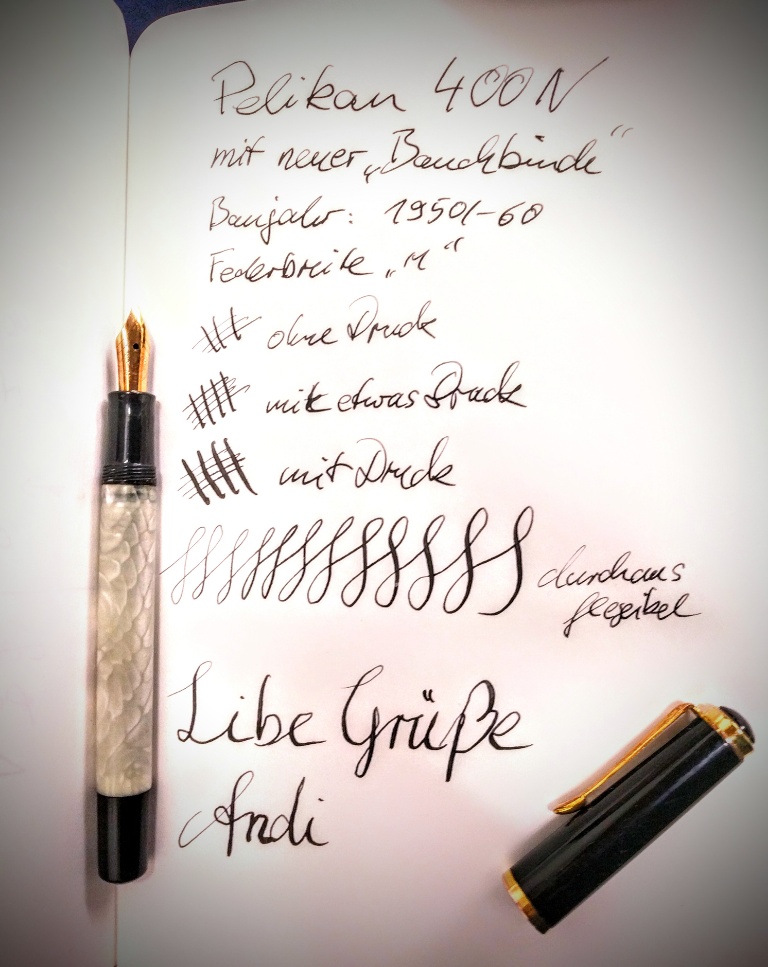 Pelikan 400N
mit neuer „Bauchbinde“
Baujahr: 1950/-60
Federbreite „M“
ohne Druck
mit etwas Druck
mit Druck
durchaus
flexibel
Libe Grüße
Andi